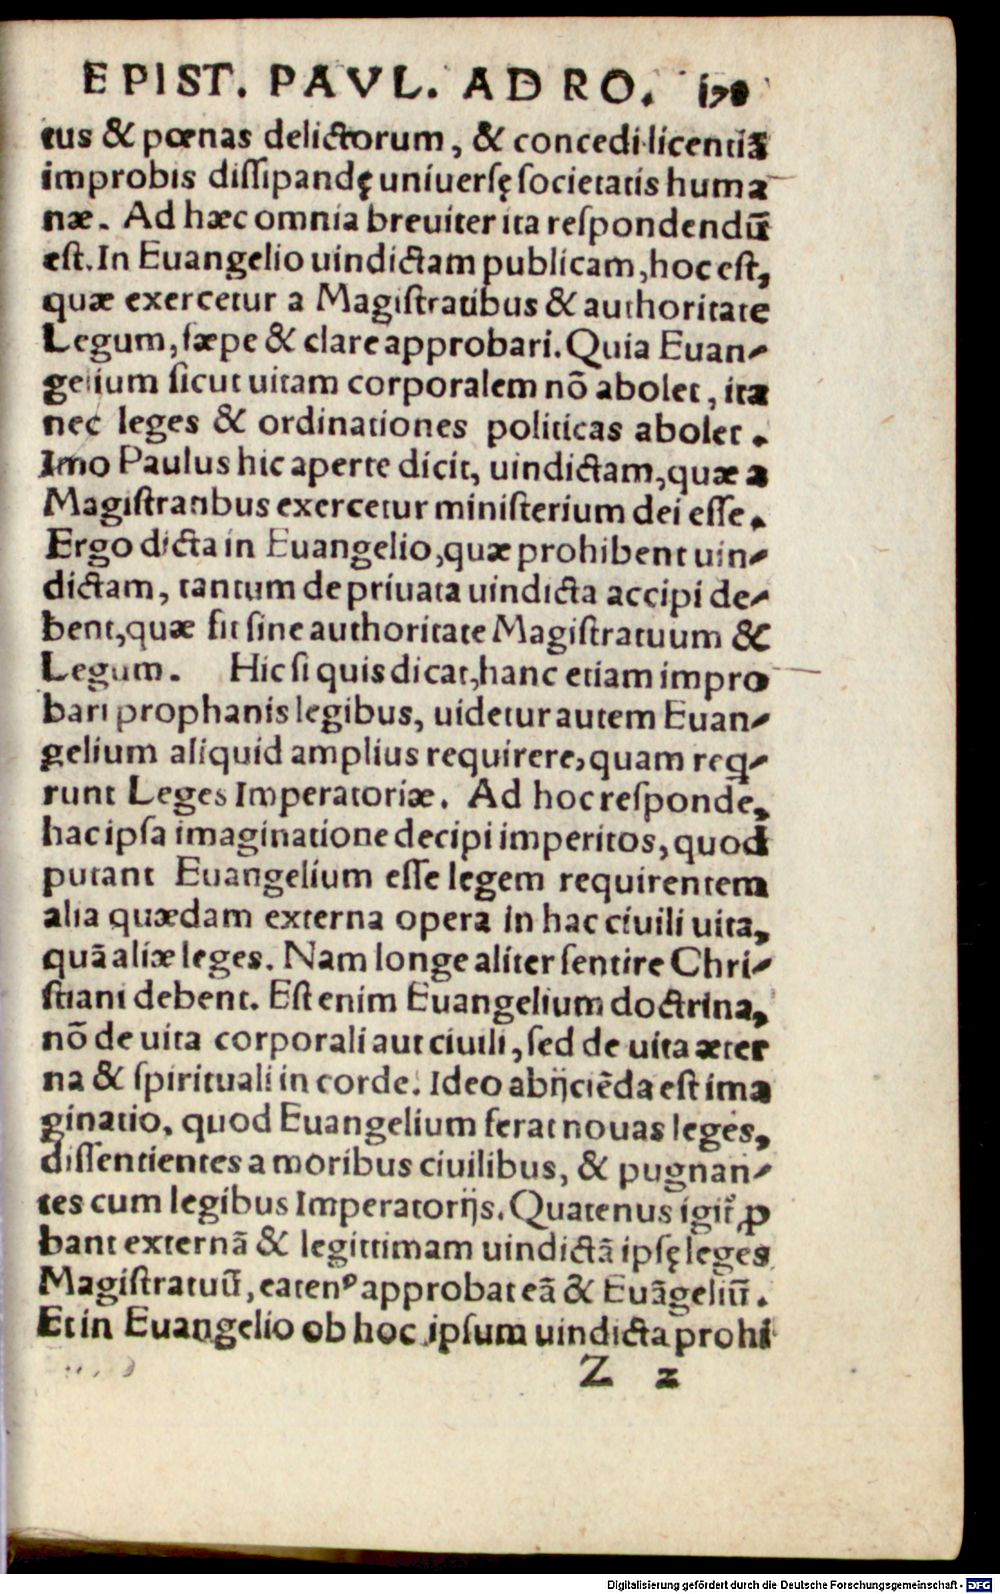 EPIST. PAVL. AD RO. 178
tus & pœnas delictorum, & concedi licentiā
improbis dissipandę uniuersę societatis huma
næ. Ad hæc omnia breuiter ita respondendū
est. In Euangelio uindictam publicam, hoc est,
quæ exercetur a Magistratibus & authoritate
Legum, sæpe & clare approbari. Quia Euan-
gelium sicut uitam corporalem nō abolet, ita
nec leges & ordinationes politicas abolet.
Imo Paulus hic aperte dicit, uindictam, quæ a
Magistratibus exercetur ministerium dei esse.
Ergo dicta in Euangelio, quæ prohibent uin-
dictam, tantum de priuata uindicta accipi de-
bent, quæ fit sine authoritate Magistratuum &
Legum. Hic si quis dicat, hanc etiam impro
bari prophanis legibus, uidetur autem Euan-
gelium aliquid amplius requirere, quam req-
runt Leges Imperatoriæ. Ad hoc responde,
hac ipsa imaginatione decipi imperitos, quod
putant Euangelium esse legem requirentem
alia quædam externa opera in hac ciuili uita,
quā aliæ leges. Nam longe aliter sentire Chri-
stiani debent. Est enim Euangelium doctrina,
nō de uita corporali aut ciuili, sed de uita æter
na & spirituali in corde. Ideo abijciēda est ima
ginatio, quod Euangelium ferat nouas leges,
dissentientes a moribus ciuilibus, & pugnan-
tes cum legibus Imperatorijs. Quatenus igit̃ ꝓ
bant externā & legittimam uindictā ipsę leges
Magistratuū, eatenꝰ approbat eā & Euāgeliū.
Et in Euangelio ob hoc ipsum uindicta prohi
Z 2
Digitalisierung gefördert durch die Deutsche Forschungsgemeinschaft - DFG